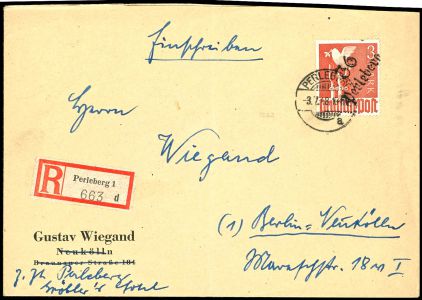 Einschreiben
3
MARK
36
Perleberg
PERLEBERG
a
Deutsche Post
Herrn
Wiegand
R
Perleberg 1
663 d
(1) Berlin-Neukölln
18 I
Gustav Wiegand
Neukölln
Braunauer Straße 184
z. Zt. Perleberg
Hotel